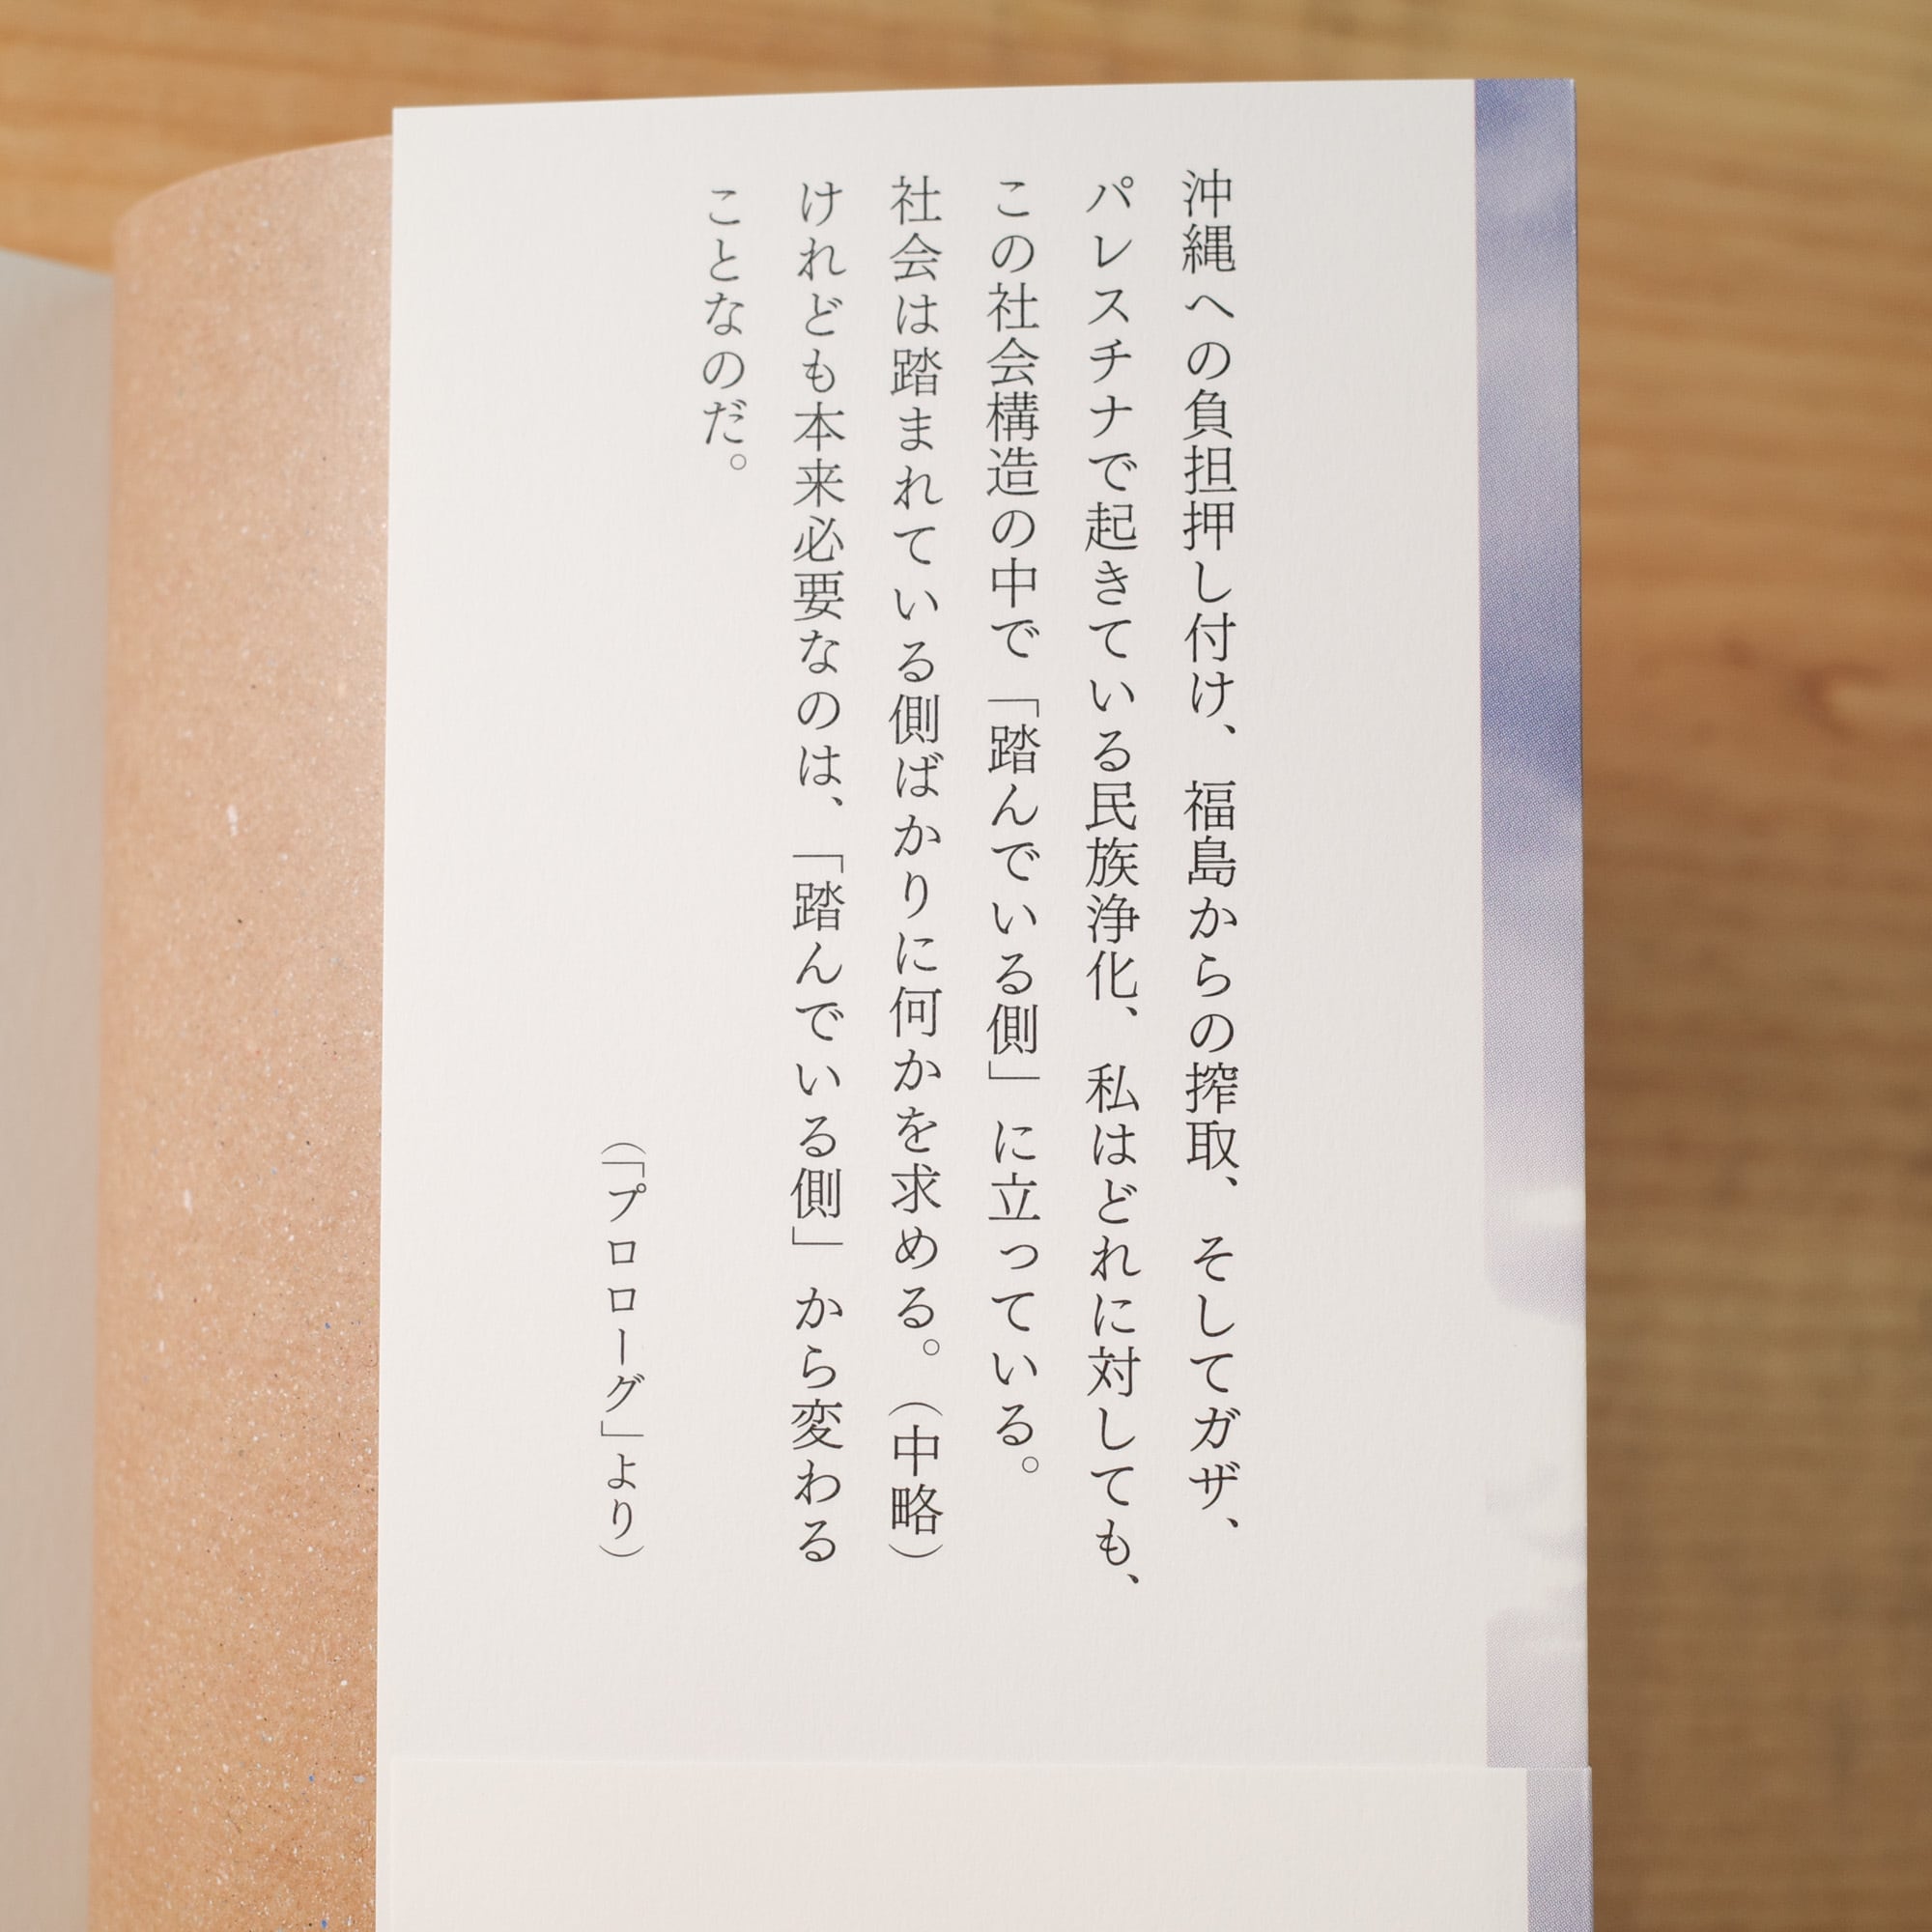 沖縄への負担押し付け、福島からの搾取、そしてガザ、
パレスチナで起きている民族浄化、私はどれに対しても、
この社会構造の中で「踏んでいる側」に立っている。
社会は踏まれている側ばかりに何かを求める。（中略）
けれども本来必要なのは、「踏んでいる側」から変わる
ことなのだ。
（「プロローグ」より）